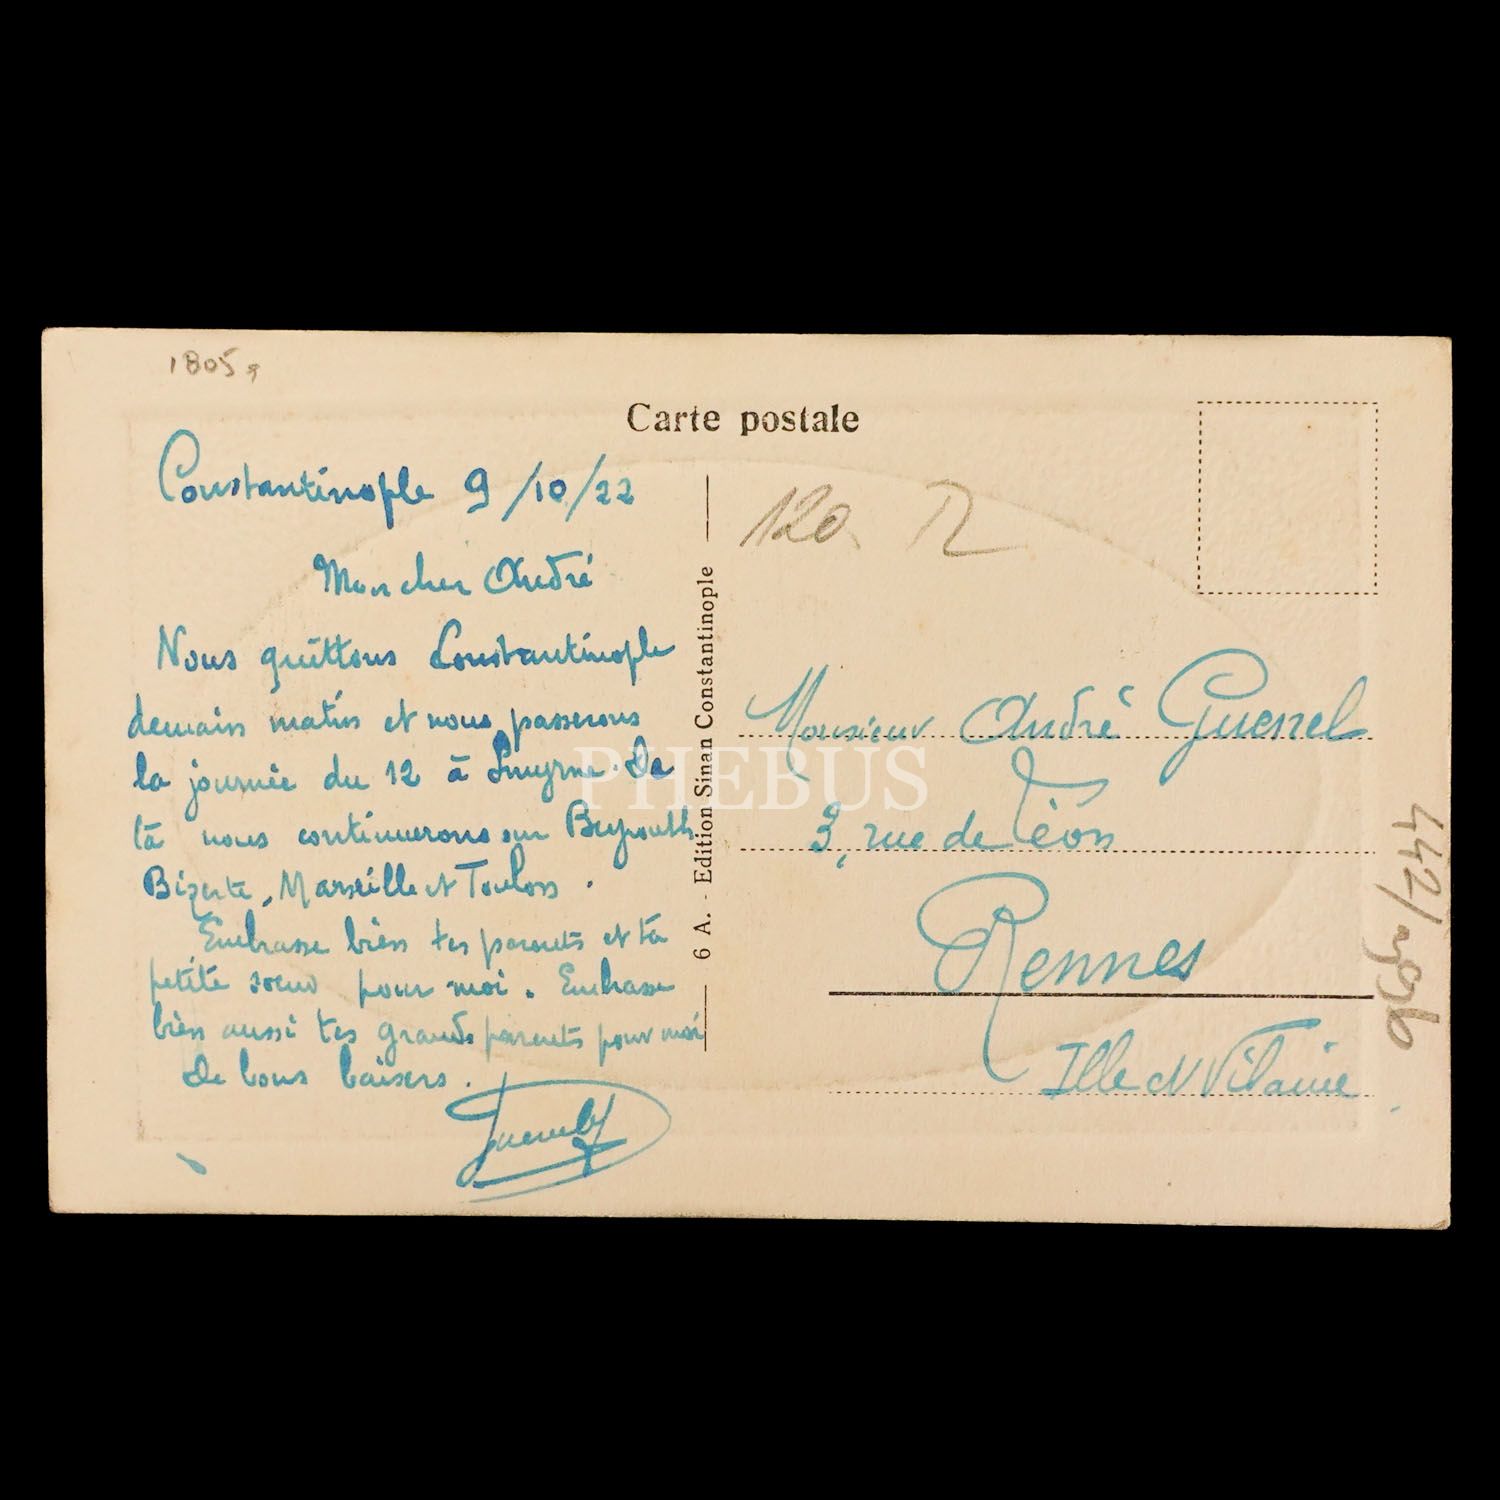 1805
Carte postale
Constantinople 9/10/22
Mon cher André
Nous quittons Constantinople
demain matin et nous passerons
la journée du 12 à Smyrne. De
là nous continuerons sur Beyrouth
Bizerte, Marseille et Toulon.
Embrasse bien tes parents et ta
petite sœur pour moi. Embrasse
bien aussi tes grands parents pour moi
De bons baisers.
6 A. - Edition Sinan Constantinople
120
Monsieur André Guesnel
3, rue de Léon
Rennes
Ille et Vilaine
PHEBUS